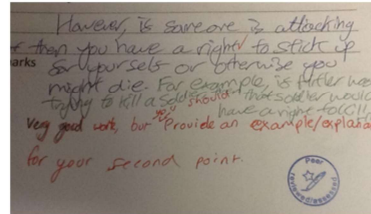 However, is someone is attacking
then you have a right to stick up
for yourself or otherwise you
might die. For example, is Hitler was
trying to kill a soldier that soldier would
have a right to kill
arks
Very good work, but you should Provide an example/explana
for your second point.
Peer
reviewed/assessed